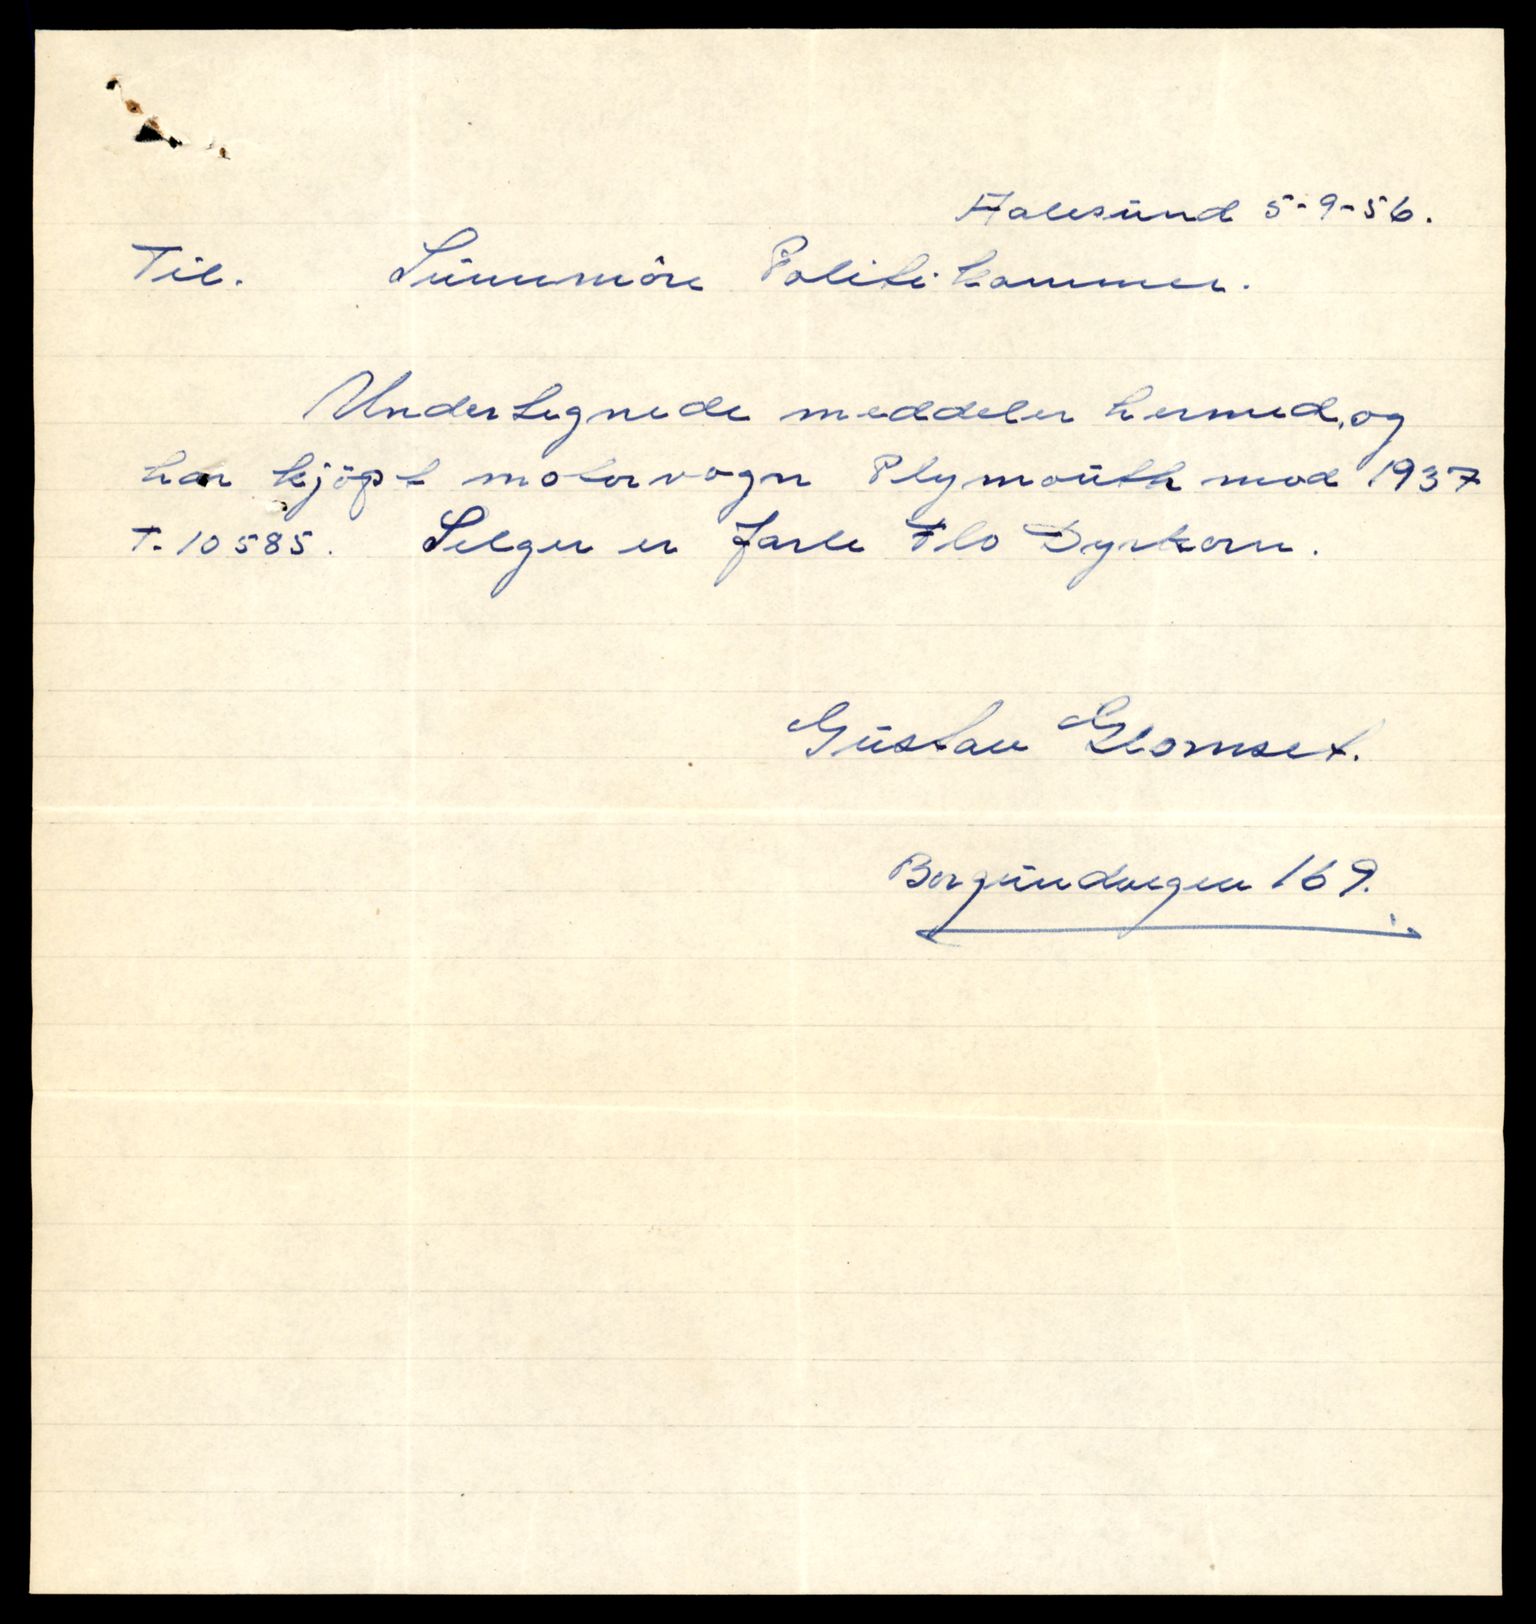 Aalesund 5-9-56.
Til. Sunnmöre Politikammer.
Undertegnede meddeler hermed, og
har kjöpt motorvogn Plymouth mod 1937
T-10585. Selger er Jarle Flo Dyrkorn.
Gustav Glomset.
Borgundvegen 169.